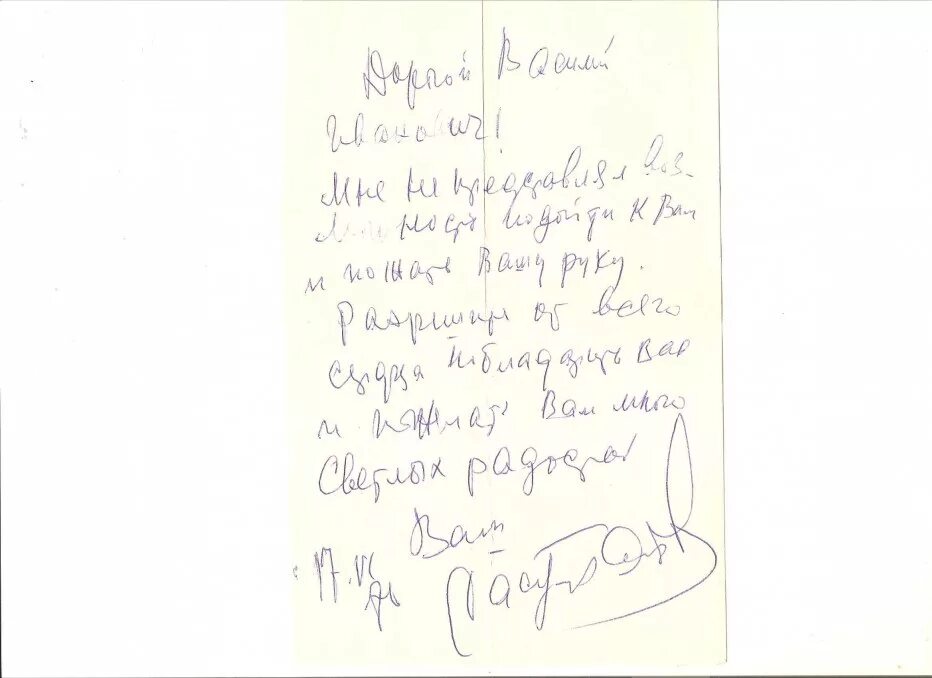 Дорогой Василий
Иванович!
Мне не представлял воз-
можность подойти к Вам
и пожать Вашу руку.
Разрешите от всего
сердца поблагодарить Вас
и пожелать Вам много
светлых радостей
Ваш
17.VI